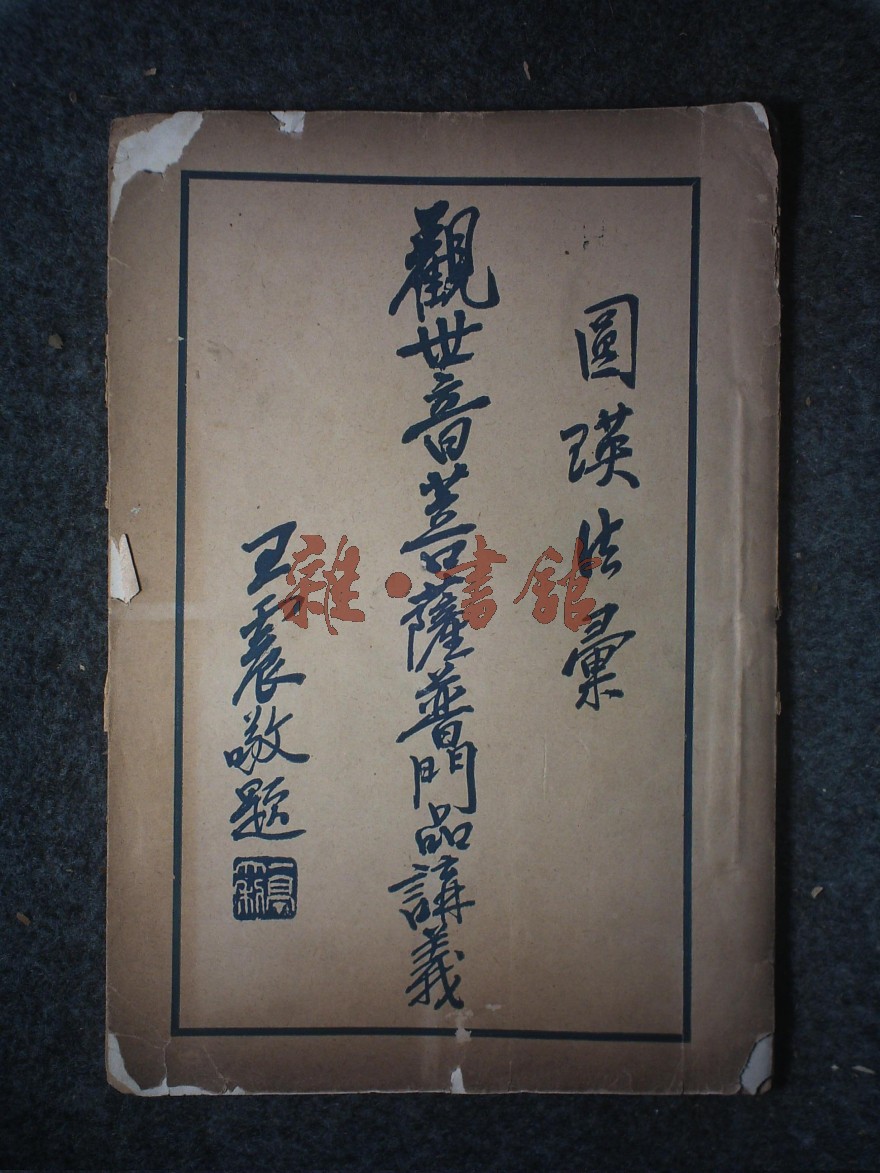 圓瑛法彙
觀世音菩薩普門品講義
王震敬題
雜·書舘